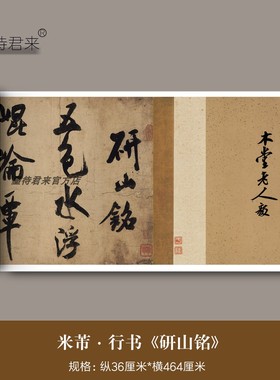 侍君来®
木堂老人毅
研山銘
五色水浮
崐崘
侍君来官方店
米芾·行书《研山铭》
规格：纵36厘米*横464厘米